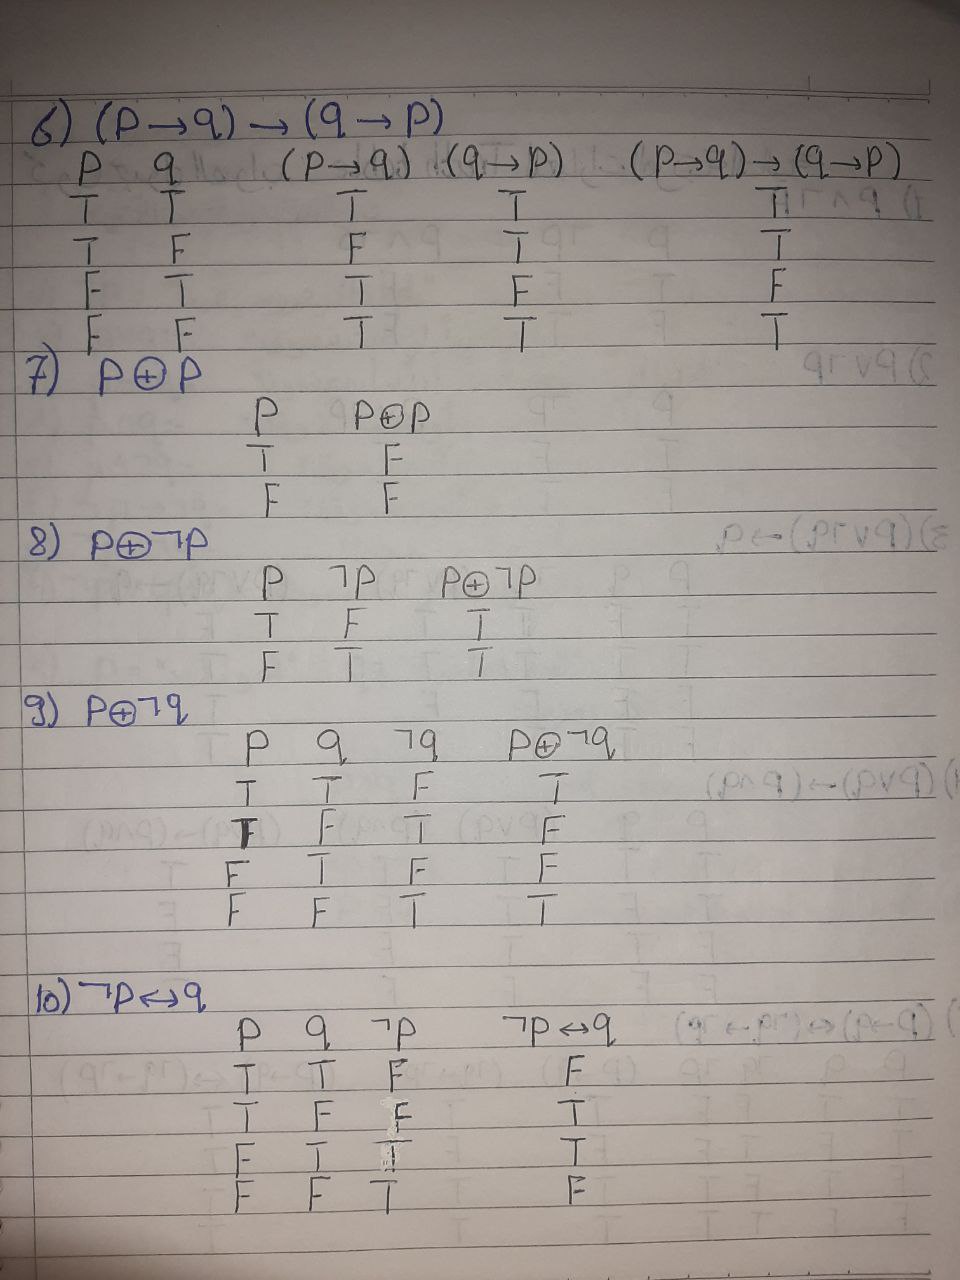 6) (P→q)→(q→P)
P q (P→q) (q→P) (P→q)→(q→P)
T T T T T
T F F T T
F T T F F
F F T T T
7) P⊕P
P P⊕P
T F
F F
8) P⊕¬P
P ¬P P⊕¬P
T F T
F T T
9) P⊕¬q
P q ¬q P⊕¬q
T T F T
T F T F
F T F F
F F T T
10) ¬P↔q
P q ¬P ¬P↔q
T T F F
T F F T
F T T T
F F T F